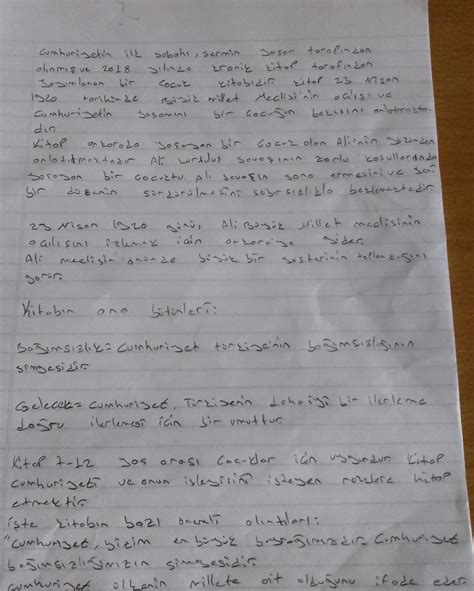 Cumhuriyetin ilk sabahı, sermin yaşar tarafından
alınmış ve 2018 yılında kronik kitap tarafından
yayımlanan bir çocuk kitabıdır. kitap 23 Nisan
1920 tarihinde Büyük millet Meclisi'nin açılışı ve
Cumhuriyetin yaşamını bir çocuğun bakışını anlatmakta-
dır.
Kitap ankarada yaşayan bir çocuk olan Ali'nin gözünden
anlatılmaktadır Ali kurtuluş savaşının zorlu koşullarında
yaşayan bir çocuktu Ali savaşın sona ermesini ve yeni
bir düzenin sürdürülmesini sabırsızlıkla beklemektedir.
23 Nisan 1920 günü, Ali Büyük Millet meclisinin
açılışını izlemek için ankaraya gider.
Ali meclisin önünde büyük bir gösterinin toplandığını
görür.
Kitabın ana
Bağımsızlık= Cumhuriyet türkiye'nin bağımsızlığının
simgesidir.
Gelecek= Cumhuriyet, Türkiyenin daha iyi bir ilerleme
doğru ilerlemesi için bir umuttur.
Kitap 7-12 yaş arası çocuklar için uygundur. kitap
cumhuriyeti ve onun isteyen hitap
etmektir.
işte kitabın bazı önemli alıntıları:
"Cumhuriyet, bizim en büyük bayrağımızdır. Cumhuriyet
bağımsızlığımızın simgesidir.
Cumhuriyet ülkenin millete ait olduğunu ifade eder.